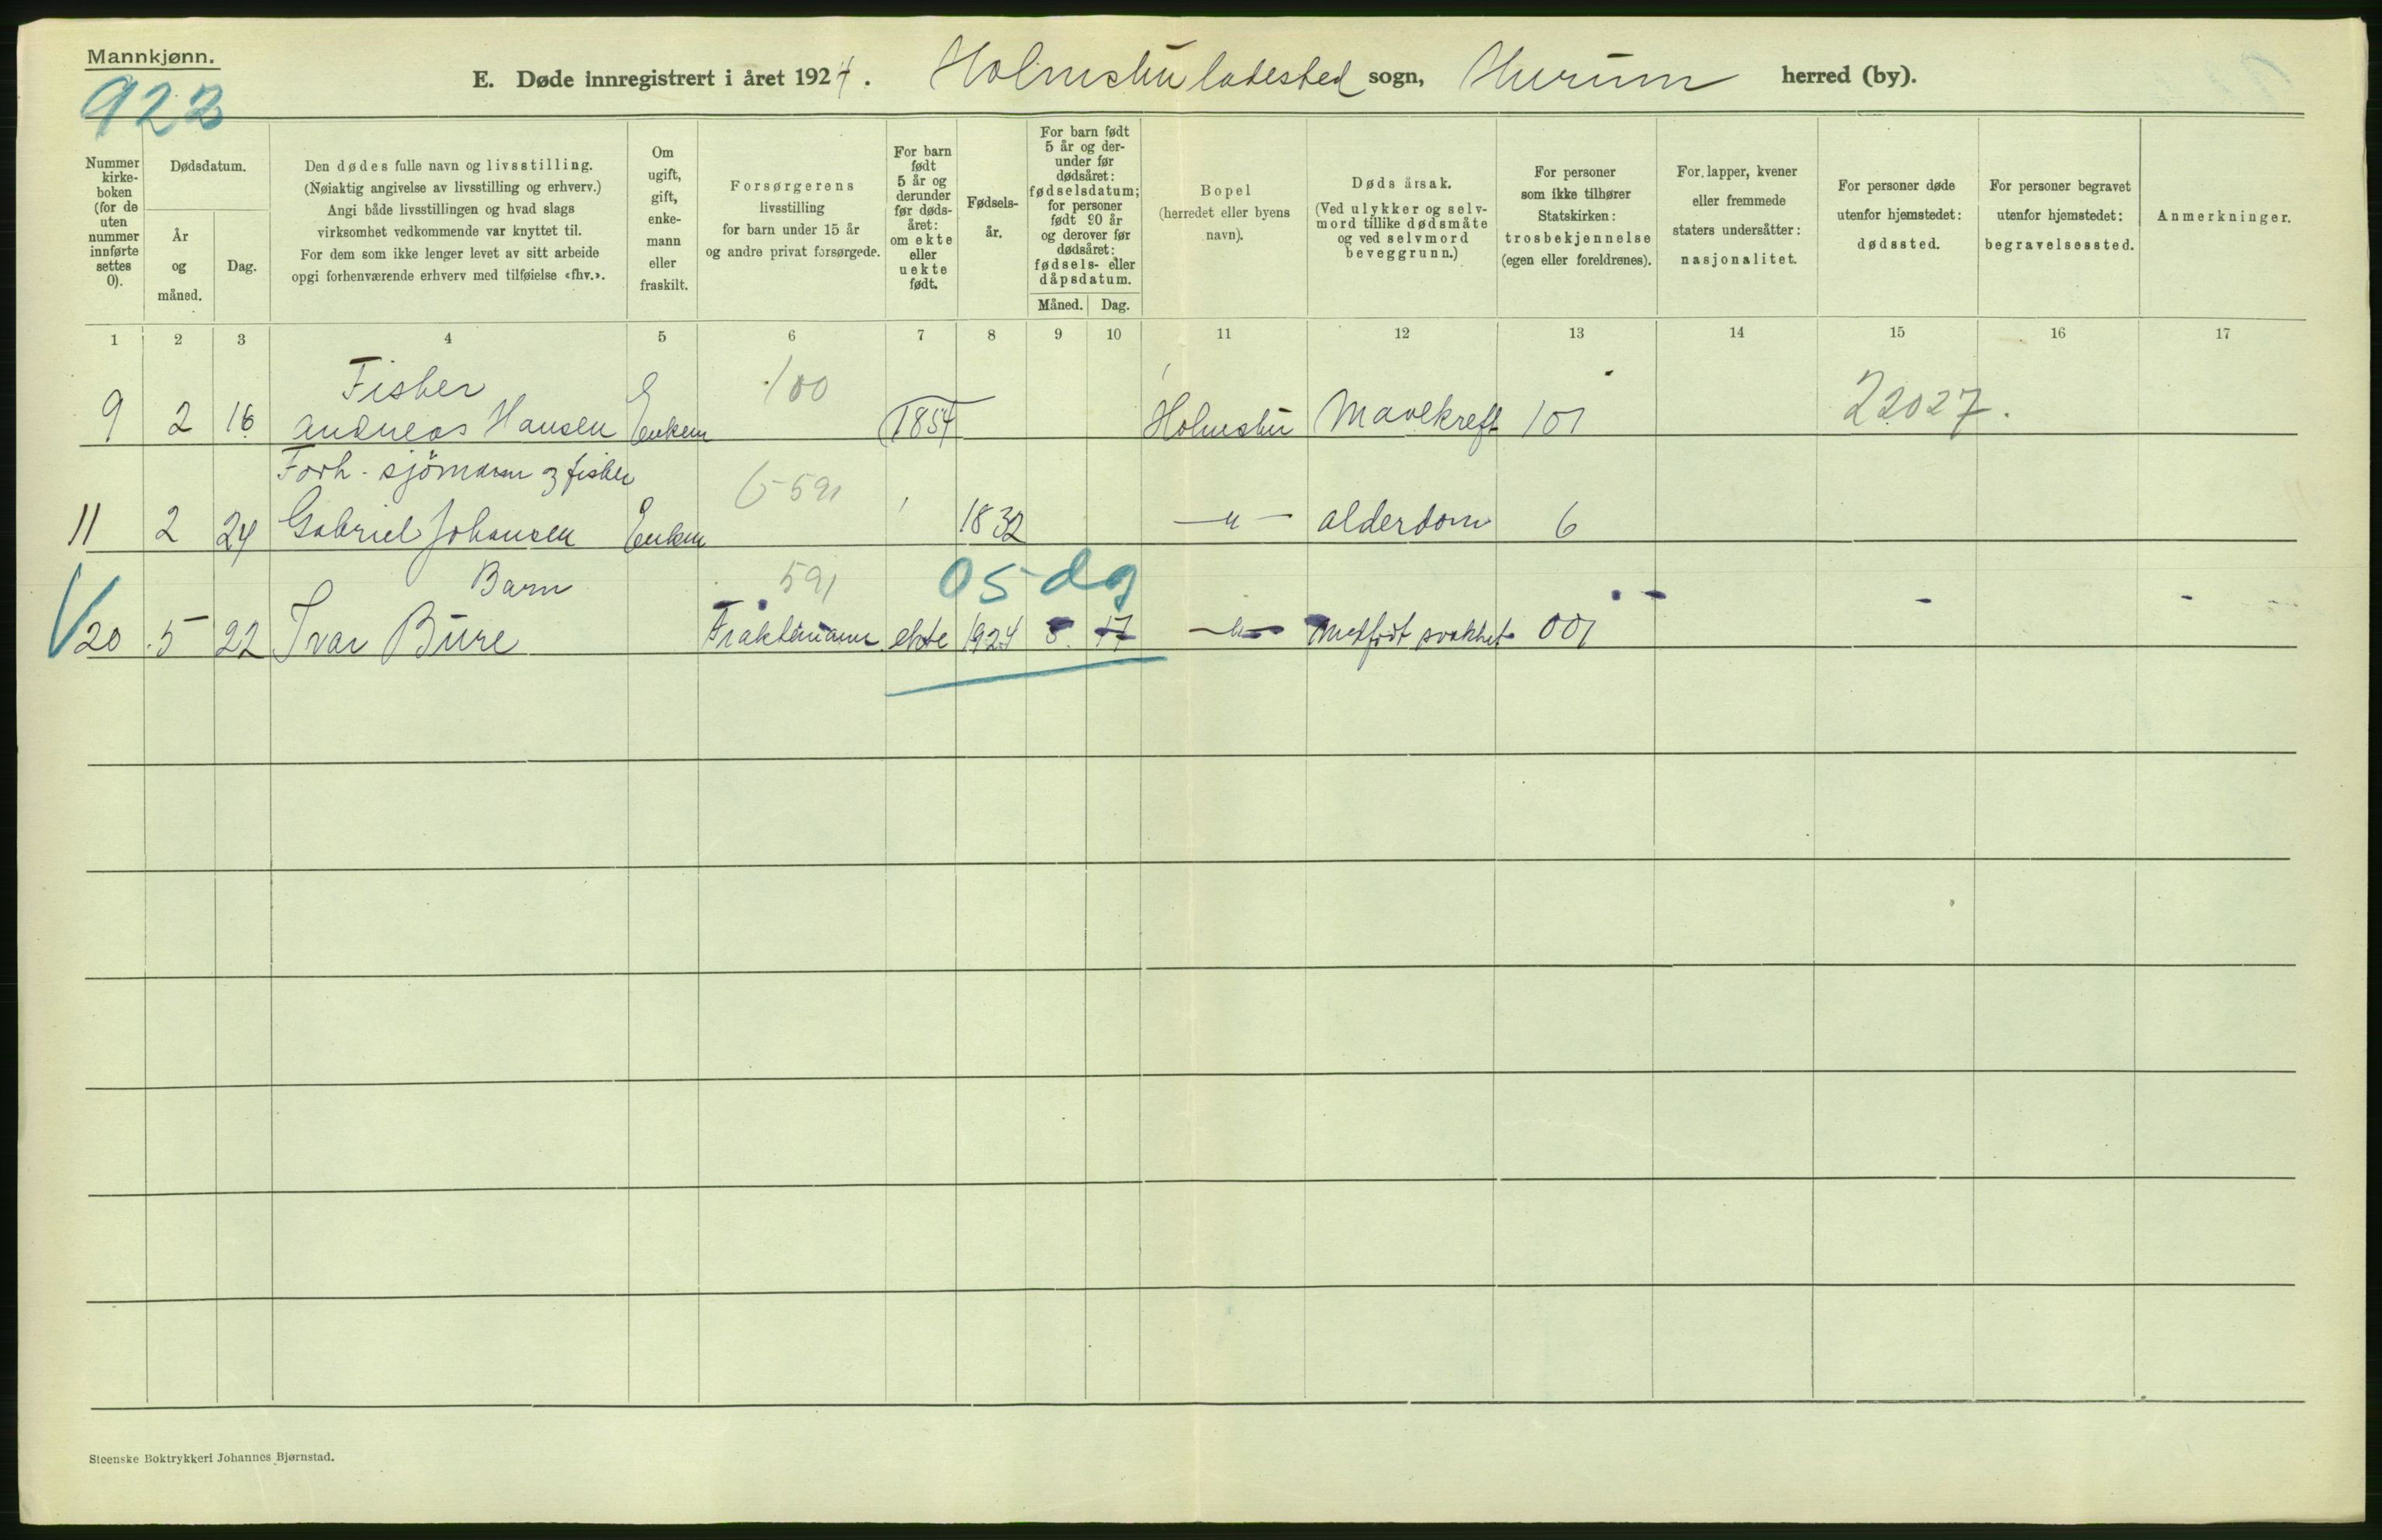 Mannkjønn.
922
E. Døde innregistrert i året 1924. Holmsbu ladested sogn, Hurum herred (by).
Nummer kirke-boken (for de uten nummer innførte settes 0).
Dødsdatum.
År og måned.
Dag.
Den dødes fulle navn og livsstilling.
(Nøiaktig angivelse av livsstilling og erhverv.)
Angi både livsstillingen og hvad slags
virksomhet vedkommende var knyttet til.
For dem som ikke lenger levet av sitt arbeide
opgi forhenværende erhverv med tilføielse «fhv.».
Om ugift, gift, enke-mann eller fraskilt.
Forsørgerens
livsstilling
for barn under 15 år
og andre privat forsørgede.
For barn født 5 år og derunder før døds-året: om ekte eller uekte født.
Fødsels-år.
For barn født 5 år og der-under før dødsåret: fødselsdatum; for personer født 90 år og derover før dødsåret: fødsels- eller dåpsdatum.
Måned. Dag.
Bopel
(herredet eller byens
navn).
Dødsårsak.
(Ved ulykker og selv-
mord tillike dødsmåte
og ved selvmord
beveggrunn.)
For personer
som ikke tilhører
Statskirken:
trosbekjennelse
(egen eller foreldrenes).
For lapper, kvener
eller fremmede
staters undersåtter:
nasjonalitet.
For personer døde
utenfor hjemstedet:
dødssted.
For personer begravet
utenfor hjemstedet:
begravelsessted.
Anmerkninger.
1 2 3 4 5 6 7 8 9 10 11 12 13 14 15 16 17
Fisker 100
9 2 16 Andreas Hansen Enkem 1854 Holmsbu Mavekreft 101 22027.
Forh. sjömann og fisker 591
11 2 24 Gabriel Johansen Enkem 1832 -"- alderdom 6
Barn 591 05 dg
V 20 5 22 Ivar Bure Fraktemann ekte 1924 5. 17 -"- Medfödt svakhet 001
Steenske Boktrykkeri Johannes Bjørnstad.